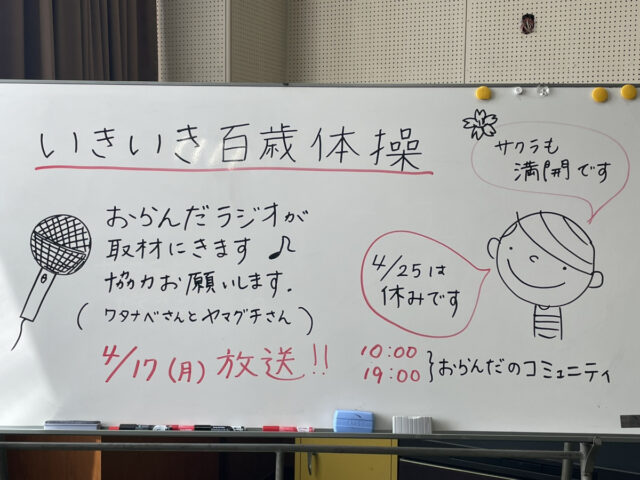 いきいき百歳体操
サクラも
満開です
おらんだラジオが
取材にきます♪
協力お願いします.
(ワタナベさんとヤマグチさん)
4/25は
休みです
4/17(月)放送!!
10:00
19:00
}おらんだのコミュニティ